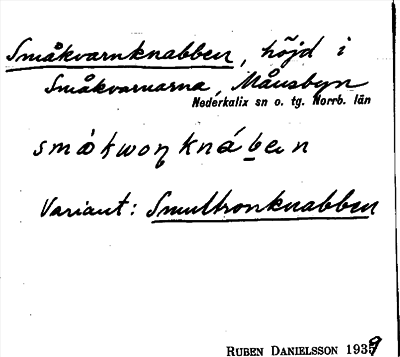 Småkvarnknabben, höjd i
Småkvarnarna, Månsbyn
Nederkalix sn o. tg. Norrb. län
småkwoƞknáben
Variant: Smultronknabben
RUBEN DANIELSSON 1939